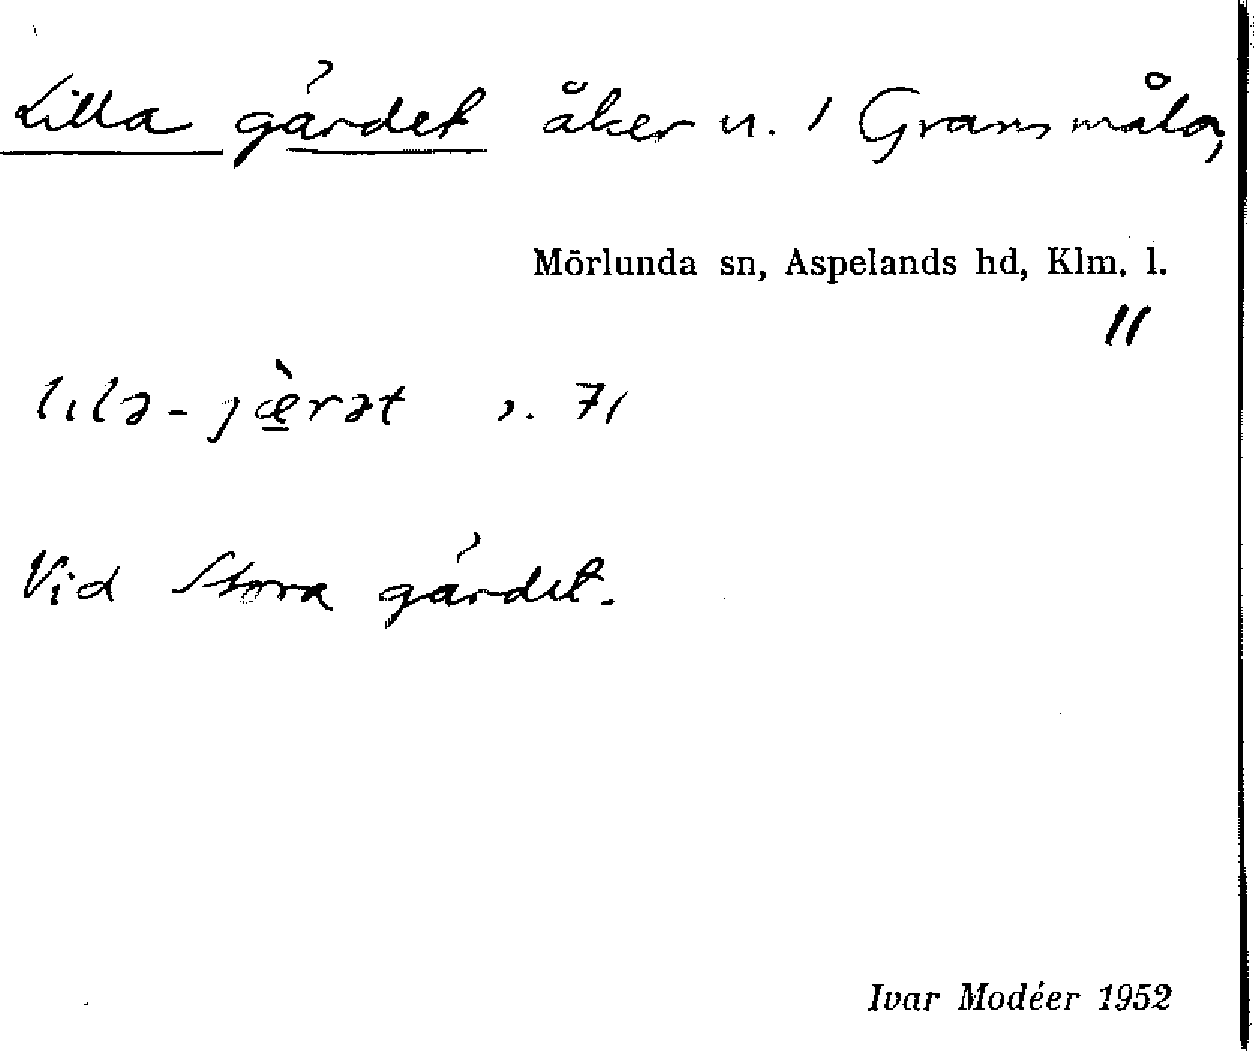 Lilla gärdet åker u. 1 Gransmåla,
Mörlunda sn, Aspelands hd, Klm. l.
11
lılə-jæ̀rət s. 71
Vid Stora gärdet.
Ivar Modéer 1952